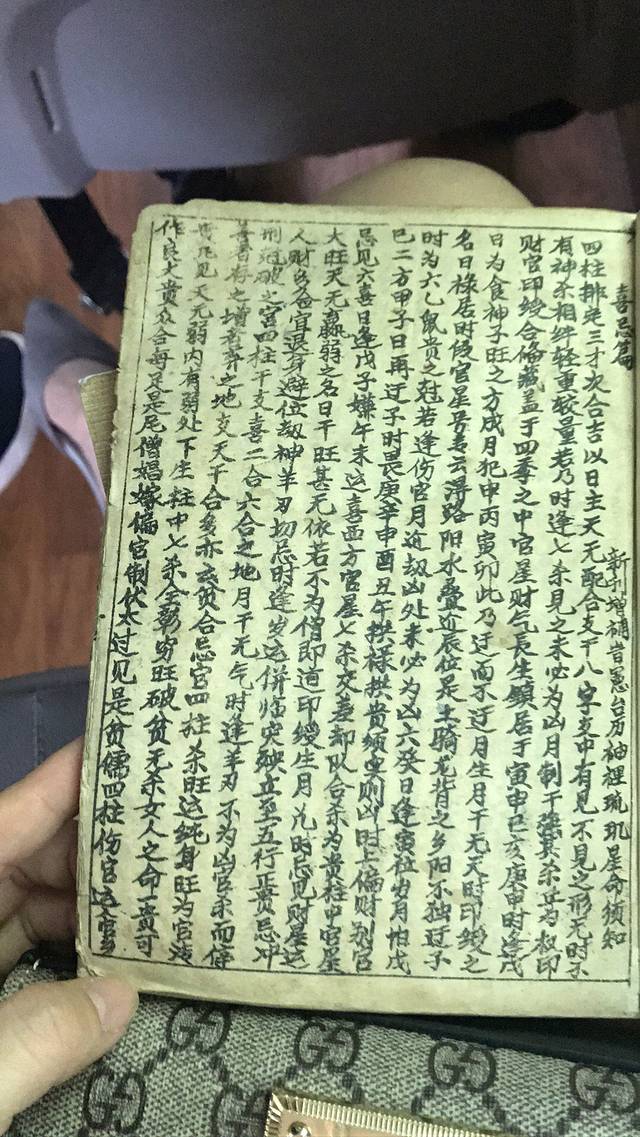 新刊增補袁憲台历袖裡琉玑星命须知
喜忌篇
四柱排定三才次合吉以日主天元配合支干八字支中有見不見之形无时不
有神杀相绊轻重較量若乃时逢七杀見之未必为凶月制干强其杀反为权印
财官印绶合偹藏盖于四季之中官星财气長生鎮居于寅申巳亥庚申时逢戊
日为食神子旺之方戍月犯甲丙寅卯此乃迂而不迂月生月干无天时印绶之
名日禄居时候官星号青云得路阳水叠逅辰位是土骑龙背之乡阳不独迂子
时为六乙鼠贵之尅若逢伤官月逅刼凶处未必为凶六癸日逢寅位岁月怕戊
巳二方甲子日再迂子时畏庚辛申酉丑午拱禄拱贵须实则凶时上偏财别宫
忌見六喜日逢戊子嫌午未运喜西方官星七杀交差却以合杀为贵柱中官星
大旺天元羸弱之名日干旺甚无依若不为僧即道印绶生月兀时忌见财星运
人财多爸宜退身避位刼神羊刃切忌时逢岁运併临灾殃立至五行正贵忌冲
刑冠破之宫四柱干支喜二合六合之地月干无气时逢羊刃不为凶官杀而停
喜者存之增者弃之地支天干合多亦云贫合忌官四柱杀旺运纯身旺为官清
凡见天元弱内有弱处下生柱中七杀全彰穷旺破贫无杀女人之命一贵可
作良大贵众合每是是尾僧娼嫁偏官制伏太过见是贫儒四柱伤官运入官乡